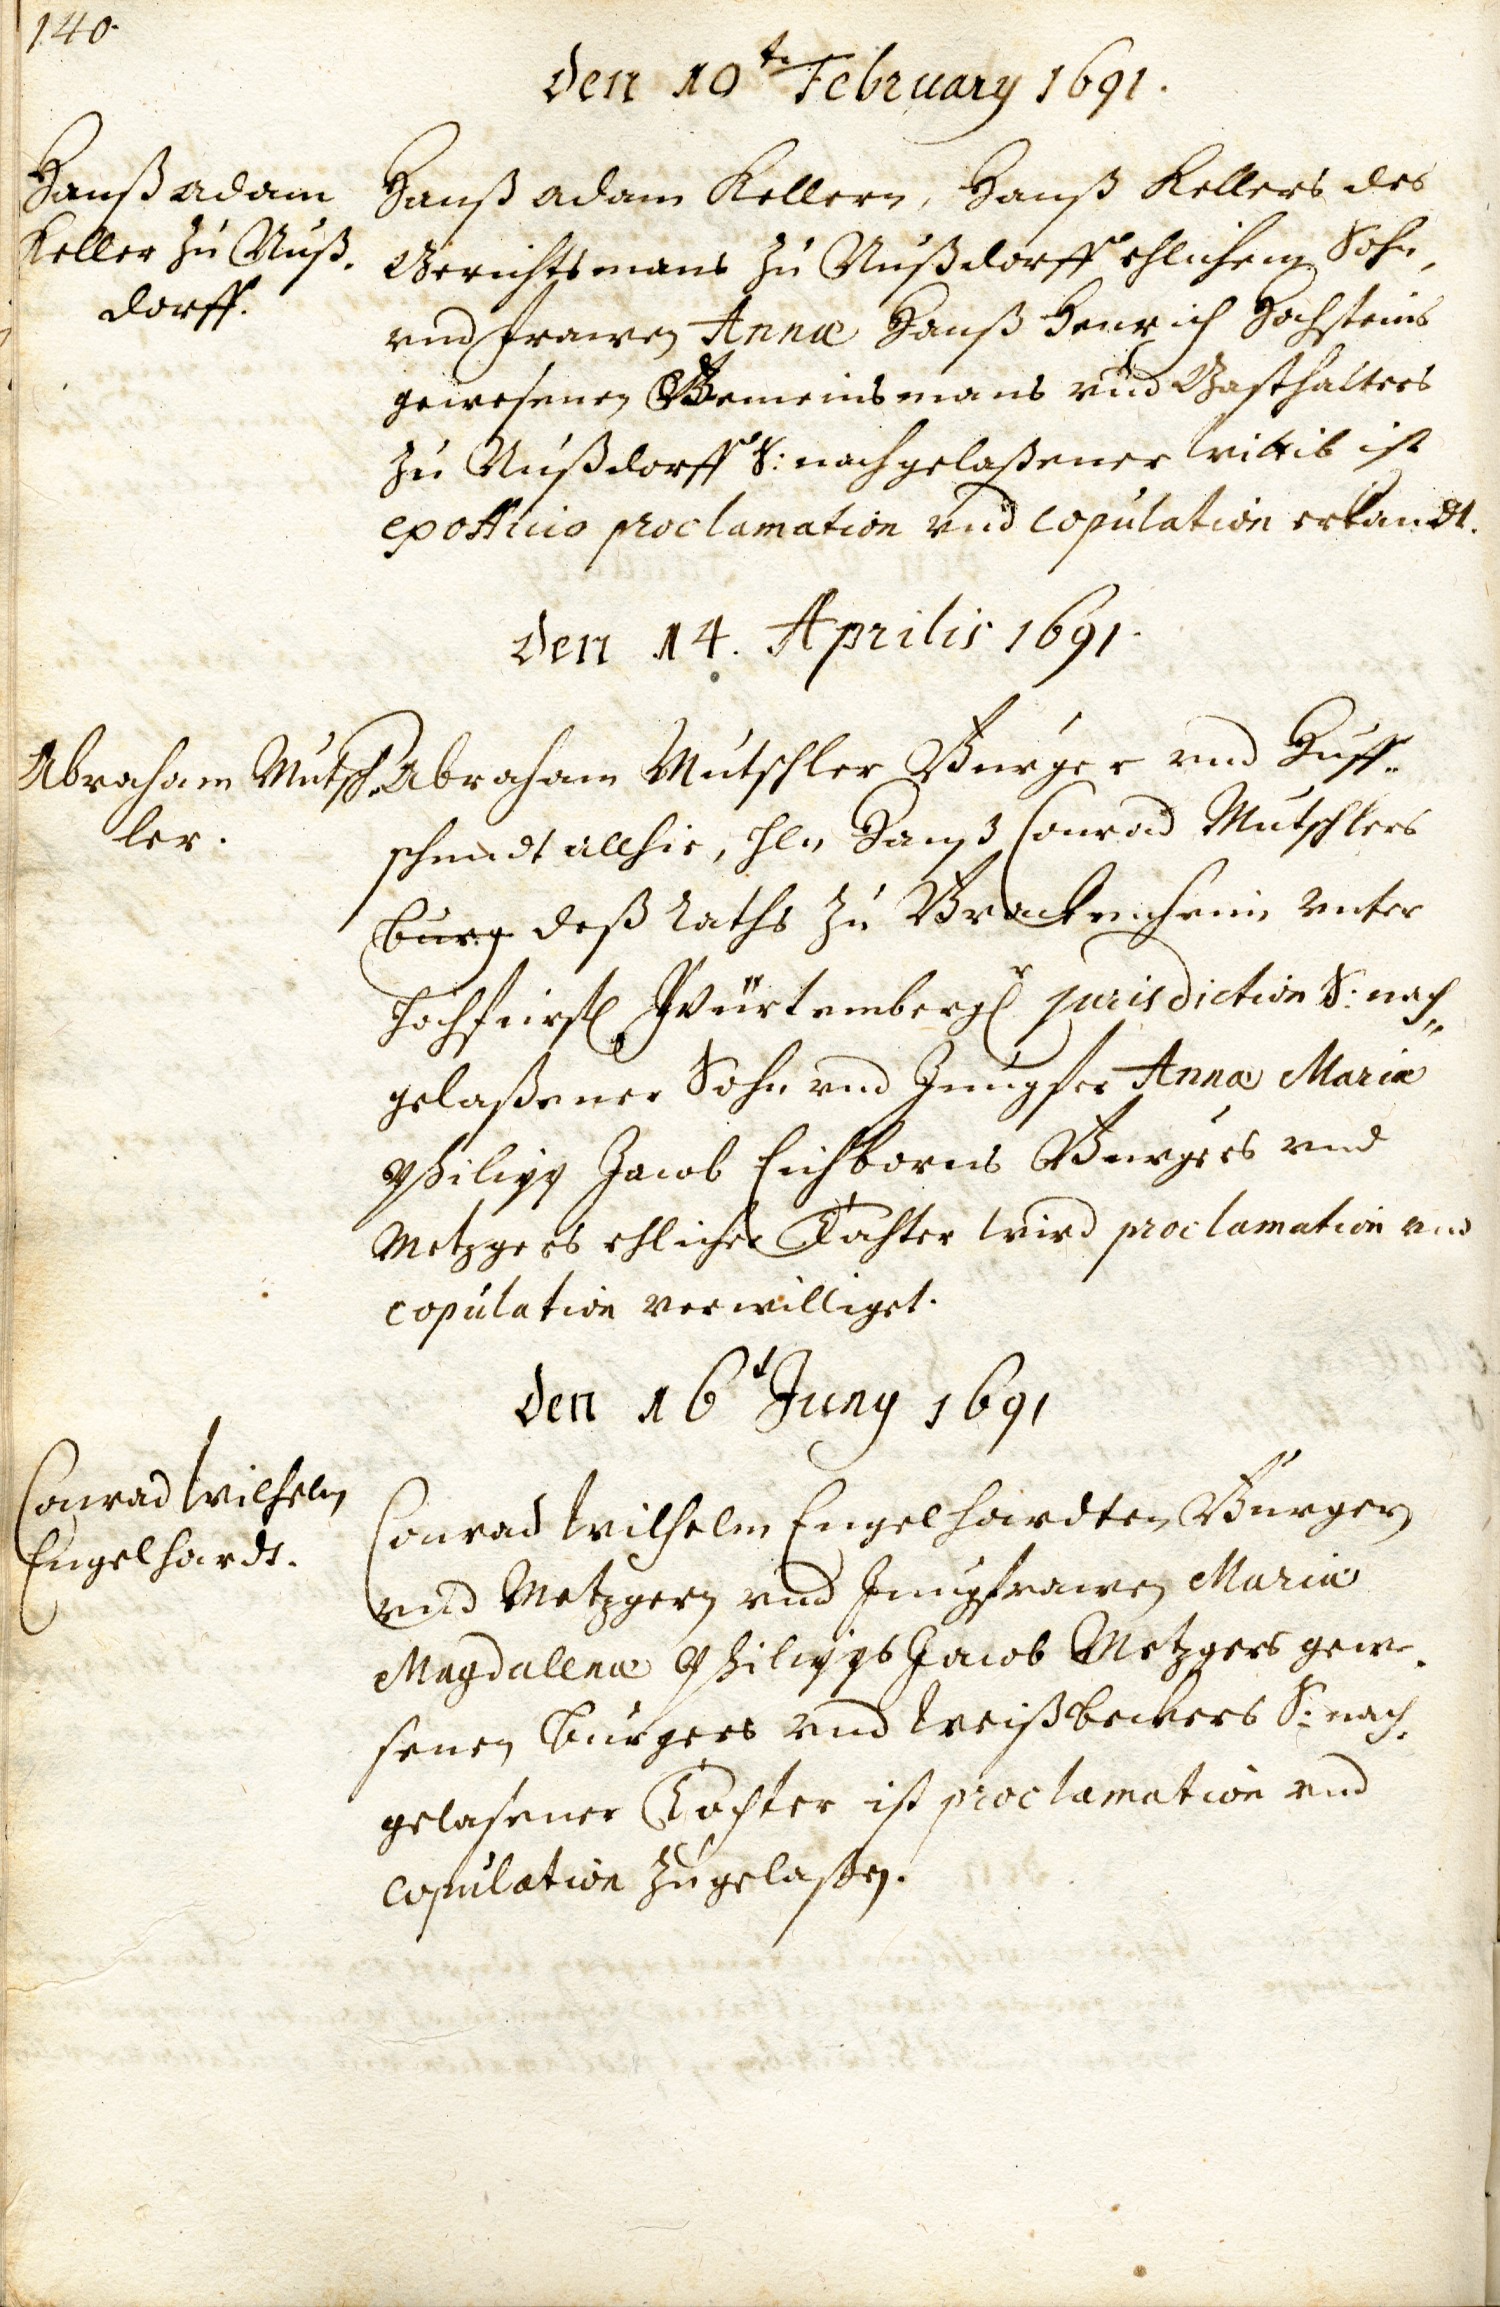 140.
den 10ten February 1691.
Hanß Adam
Keller zu Nuß.
dorff.
Hanß Adam Kellern, Hanß Kellers des
Gerichtsmans zu Nußdorff ehlichem Sohn,
vnd frawen Annæ Hanß Henrich Hochsteins
gewesenen Gemeinsmans vnd Gasthalters
zu Nußdorff S: nachgelaßener Wittib ist
ex officio proclamation vnd copulation erkandt.
den 14. Aprilis 1691.
Abraham Mutsch-
ler.
Abraham Mutschler Burger vnd Huff-
schmidt allhie, Hln Hanß Conrad Mutschlers
burg deß Raths zu Brackenheim vnter
Hochfürstl Würtembergl jurisdiction S: nach-
gelaßener Sohn vnd Jungfer Annæ Mariæ
Philipp Jacob Eichborns Burgers vnd
Metzgers ehlicher Tochter wird proclamation vnd
copulation verwilliget.
den 16t Juny 1691
Conrad Wilhelm
Engelhardt.
Conrad Wilhelm Engelhardten Burgern
vnd Metzgern vnd Jungfrawen Mariæ
Magdalenæ Philipps Jacob Metzgers gewe-
senen burgers vnd Weißbeckers S: nach-
gelasener Tochter ist proclamation vnd
copulation zugelaßen.